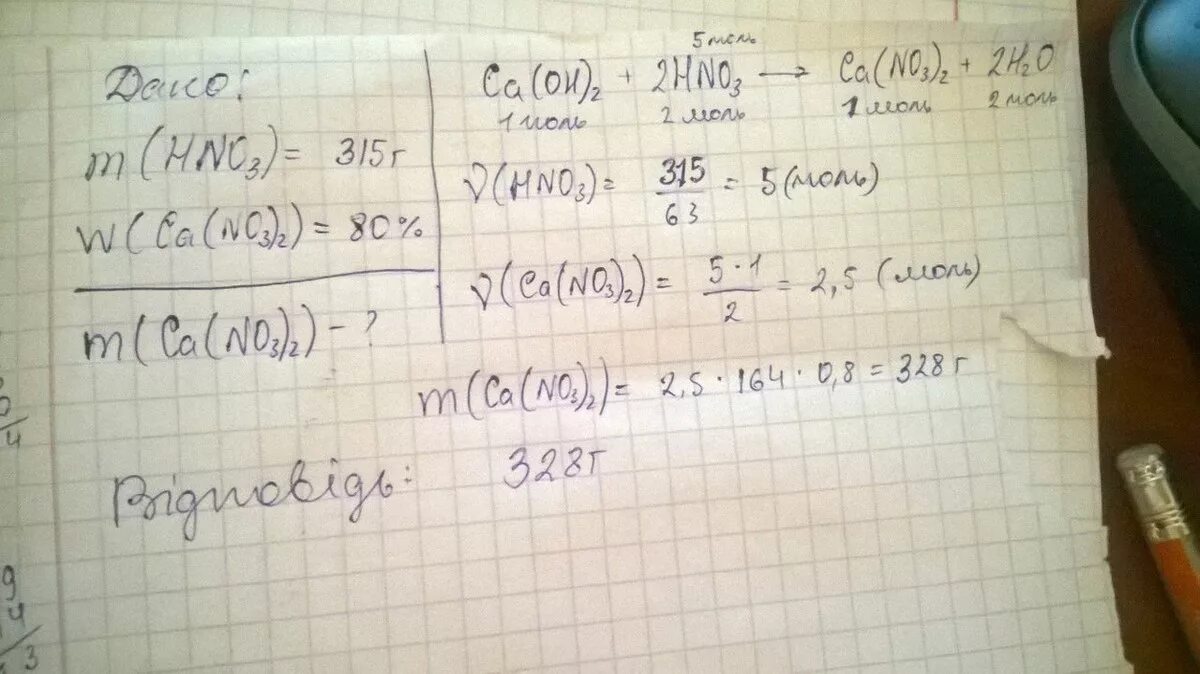 Дано:
m(HNO₃) = 315 г
W(Ca(NO₃)₂) = 80%
m(Ca(NO₃)₂) - ?
5 моль
Ca(OH)₂ + 2HNO₃ → Ca(NO₃)₂ + 2H₂O
1 моль 2 моль 1 моль 2 моль
ν(HNO₃) = 315/63 = 5 (моль)
ν(Ca(NO₃)₂) = 5·1/2 = 2,5 (моль)
m(Ca(NO₃)₂) = 2,5 · 164 · 0,8 = 328 г
Відповідь: 328 г